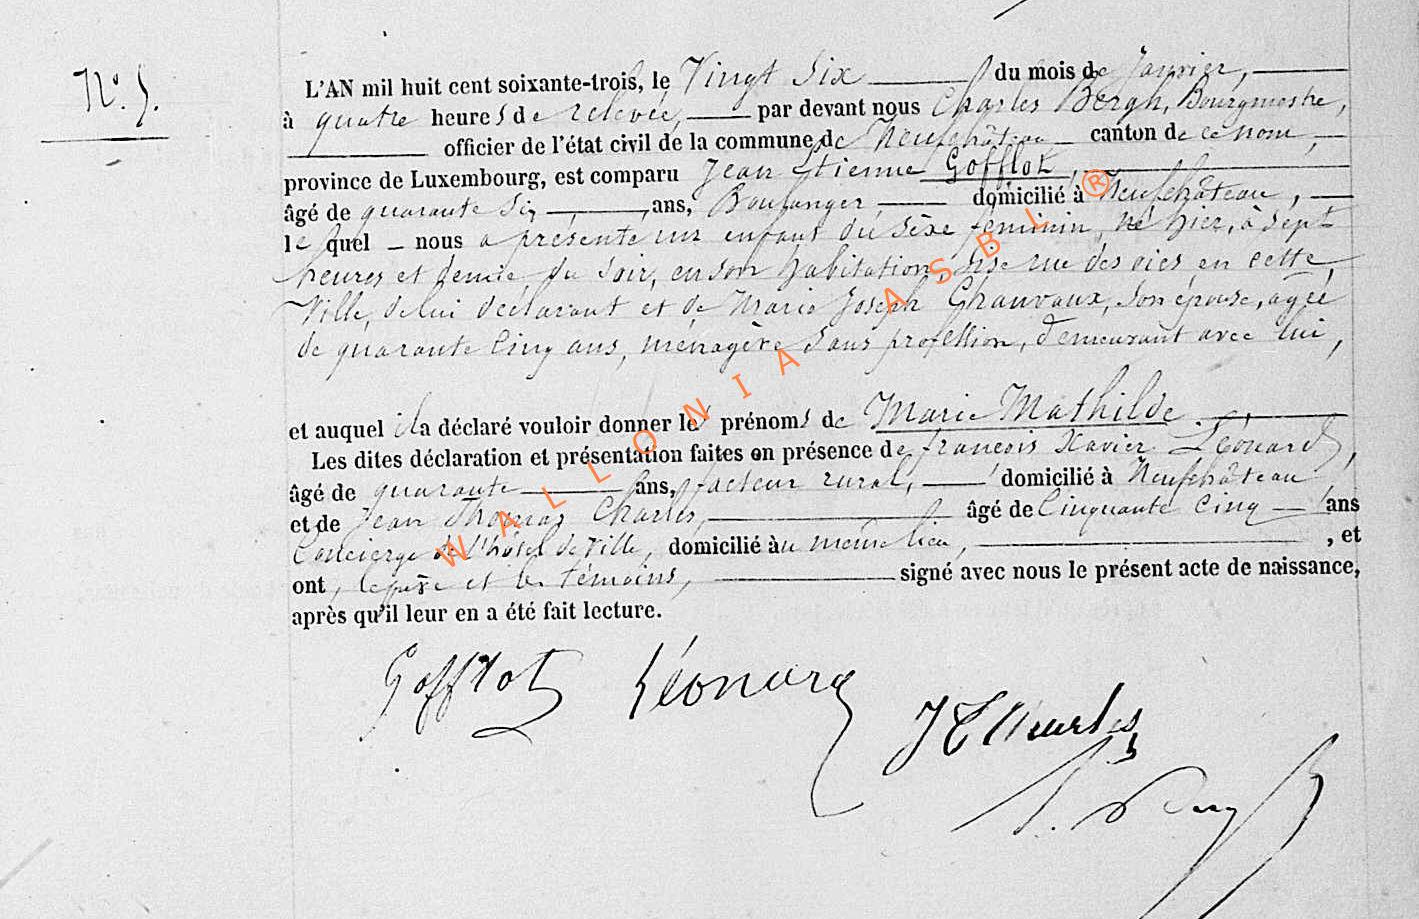 N°. 5.
L'AN mil huit cent soixante-trois, le Vingt Six du mois de Janvier,
à quatre heures de relevée, par devant nous Charles Bergh, Bourgmestre,
officier de l'état civil de la commune de Neufchâteau canton de ce nom,
province de Luxembourg, est comparu Jean Etienne Gofflot,
âgé de quarante Six ans, Boulanger, domicilié à Neufchâteau,
lequel nous a présenté un enfant du sèxe féminin, né hier, à Sept
heures et demie, du Soir, en son habitation, Sise rue des oies en cette
Ville, de lui déclarant et de Marie Joseph Chauvaux, Son épouse, agée
de quarante Cinq ans, ménagère Sans profession, demeurant avec lui,
et auquel il a déclaré vouloir donner les prénoms de Marie Mathilde.
Les dites déclaration et présentation faites en présence de françois Xavier Léonard,
âgé de quarante ans, facteur rural, domicilié à Neufchâteau
et de Jean Thomas Charles, âgé de Cinquante Cinq ans
Concierge de l'hôtel de Ville, domicilié au même lieu, , et
ont, le père et les témoins, signé avec nous le présent acte de naissance,
après qu'il leur en a été fait lecture.
Gofflot Léonard
J T Charles
WALLONIA ASBL ®